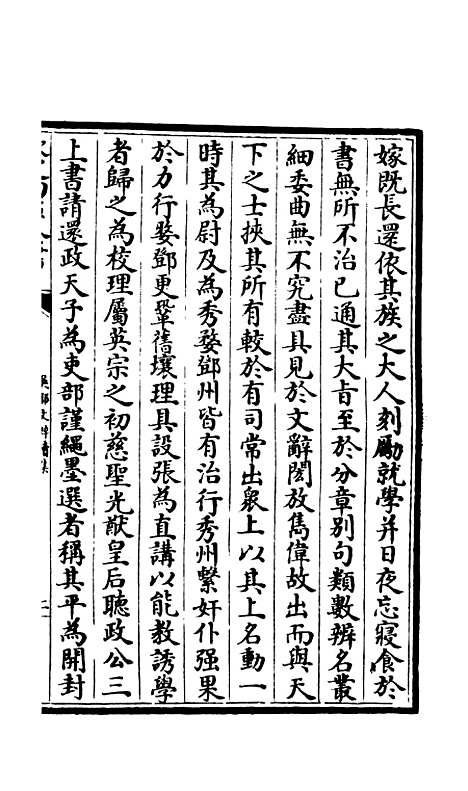 嫁既長還依其族之大人刻勵就學并日夜忘寢食於
書無所不治已通其大旨至於分章別句類數辨名叢
細委曲無不究盡具見於文辭閎放雋偉故出而與天
下之士挾其所有較於有司常出衆上以其上名動一
時其為尉及為秀婺鄧州皆有治行秀州繫奸仆强果
於力行婺鄧更鞏舊壤理具設張為直講以能教誘學
者歸之為校理屬英宗之初慈聖光獻皇后聽政公三
上書請還政天子為吏部謹繩墨選者稱其平為開封
吳都文粹續集